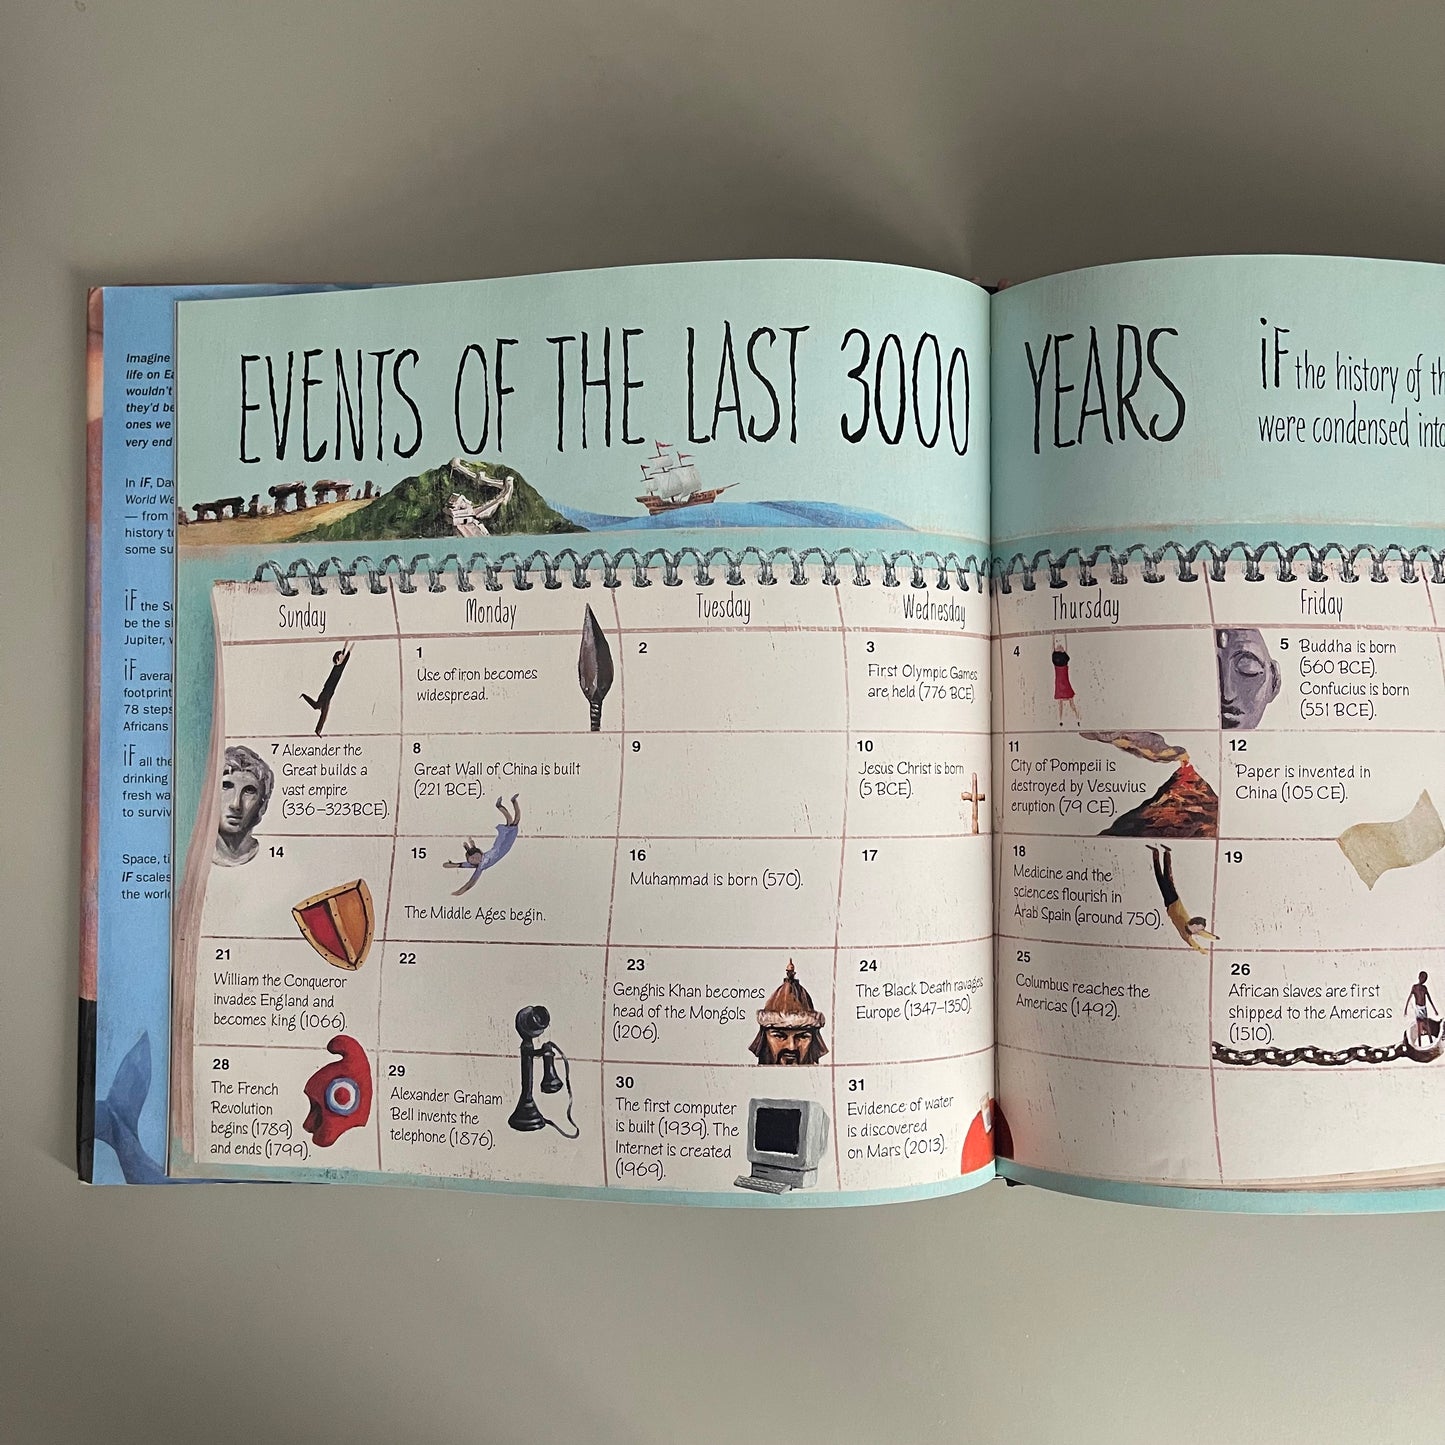 EVENTS OF THE LAST 3000 YEARS
iF the history of
were condensed into
Imagine
life on
wouldn't
they'd be
ones we
very end
In iF,
World
— from
history
some
iF the
be the
Jupiter,
iF
footprint
78 steps
Africans
iF all the
drinking
fresh
to
Space,
iF scales
the
Sunday
Monday
Tuesday
Wednesday
Thursday
Friday
1
Use of iron becomes
widespread.
2
3
First Olympic Games
are held (776 BCE).
4
5 Buddha is born
(560 BCE).
Confucius is born
(551 BCE).
7 Alexander the
Great builds a
vast empire
(336–323BCE).
8
Great Wall of China is built
(221 BCE).
9
10
Jesus Christ is born
(5 BCE).
11
City of Pompeii is
destroyed by Vesuvius
eruption (79 CE).
12
Paper is invented in
China (105 CE).
14
15
The Middle Ages begin.
16
Muhammad is born (570).
17
18
Medicine and the
sciences flourish in
Arab Spain (around 750).
19
21
William the Conqueror
invades England and
becomes king (1066).
22
23
Genghis Khan becomes
head of the Mongols
(1206).
24
The Black Death ravages
Europe (1347–1350).
25
Columbus reaches the
Americas (1492).
26
African slaves are first
shipped to the Americas
(1510).
28
The French
Revolution
begins (1789)
and ends (1799).
29
Alexander Graham
Bell invents the
telephone (1876).
30
The first computer
is built (1939). The
Internet is created
(1969).
31
Evidence of water
is discovered
on Mars (2013).